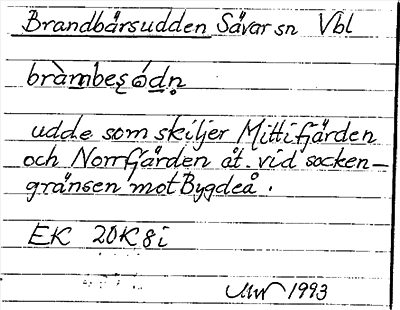 Brandbärsudden Sävar sn Vbl
bràmbesódn
udde som skiljer Mittifjärden
och Norrfjärden åt vid socken-
gränsen mot Bygdeå.
EK 20K8i
1993